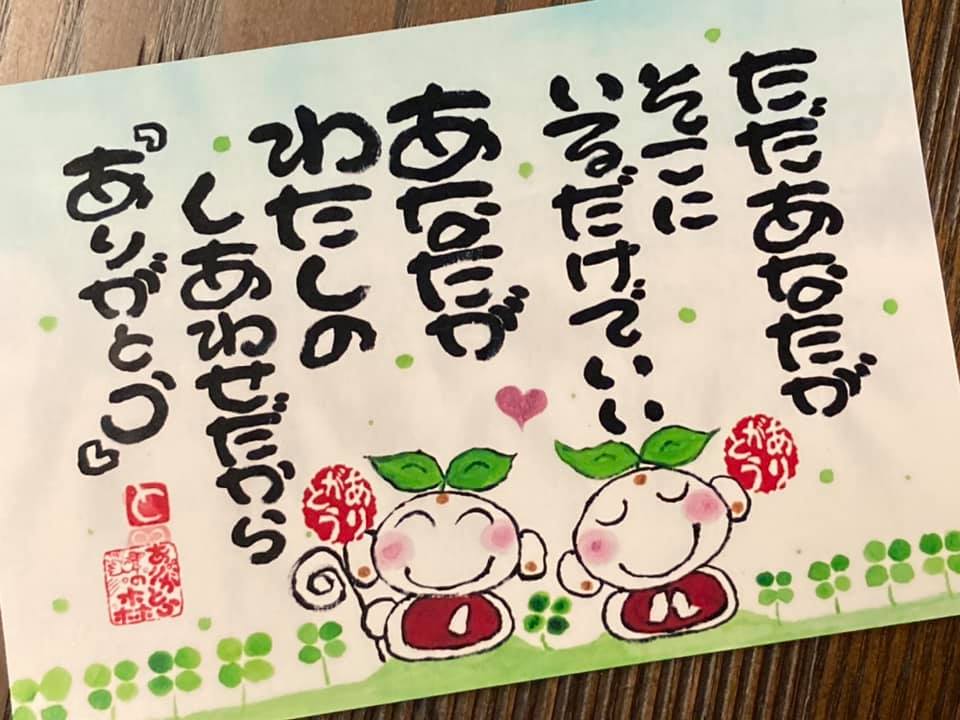 ただあなたが
そこに
いるだけでいい
あなたが
わたしの
しあわせだから
『ありがとう』
ありがとう
ありがとう